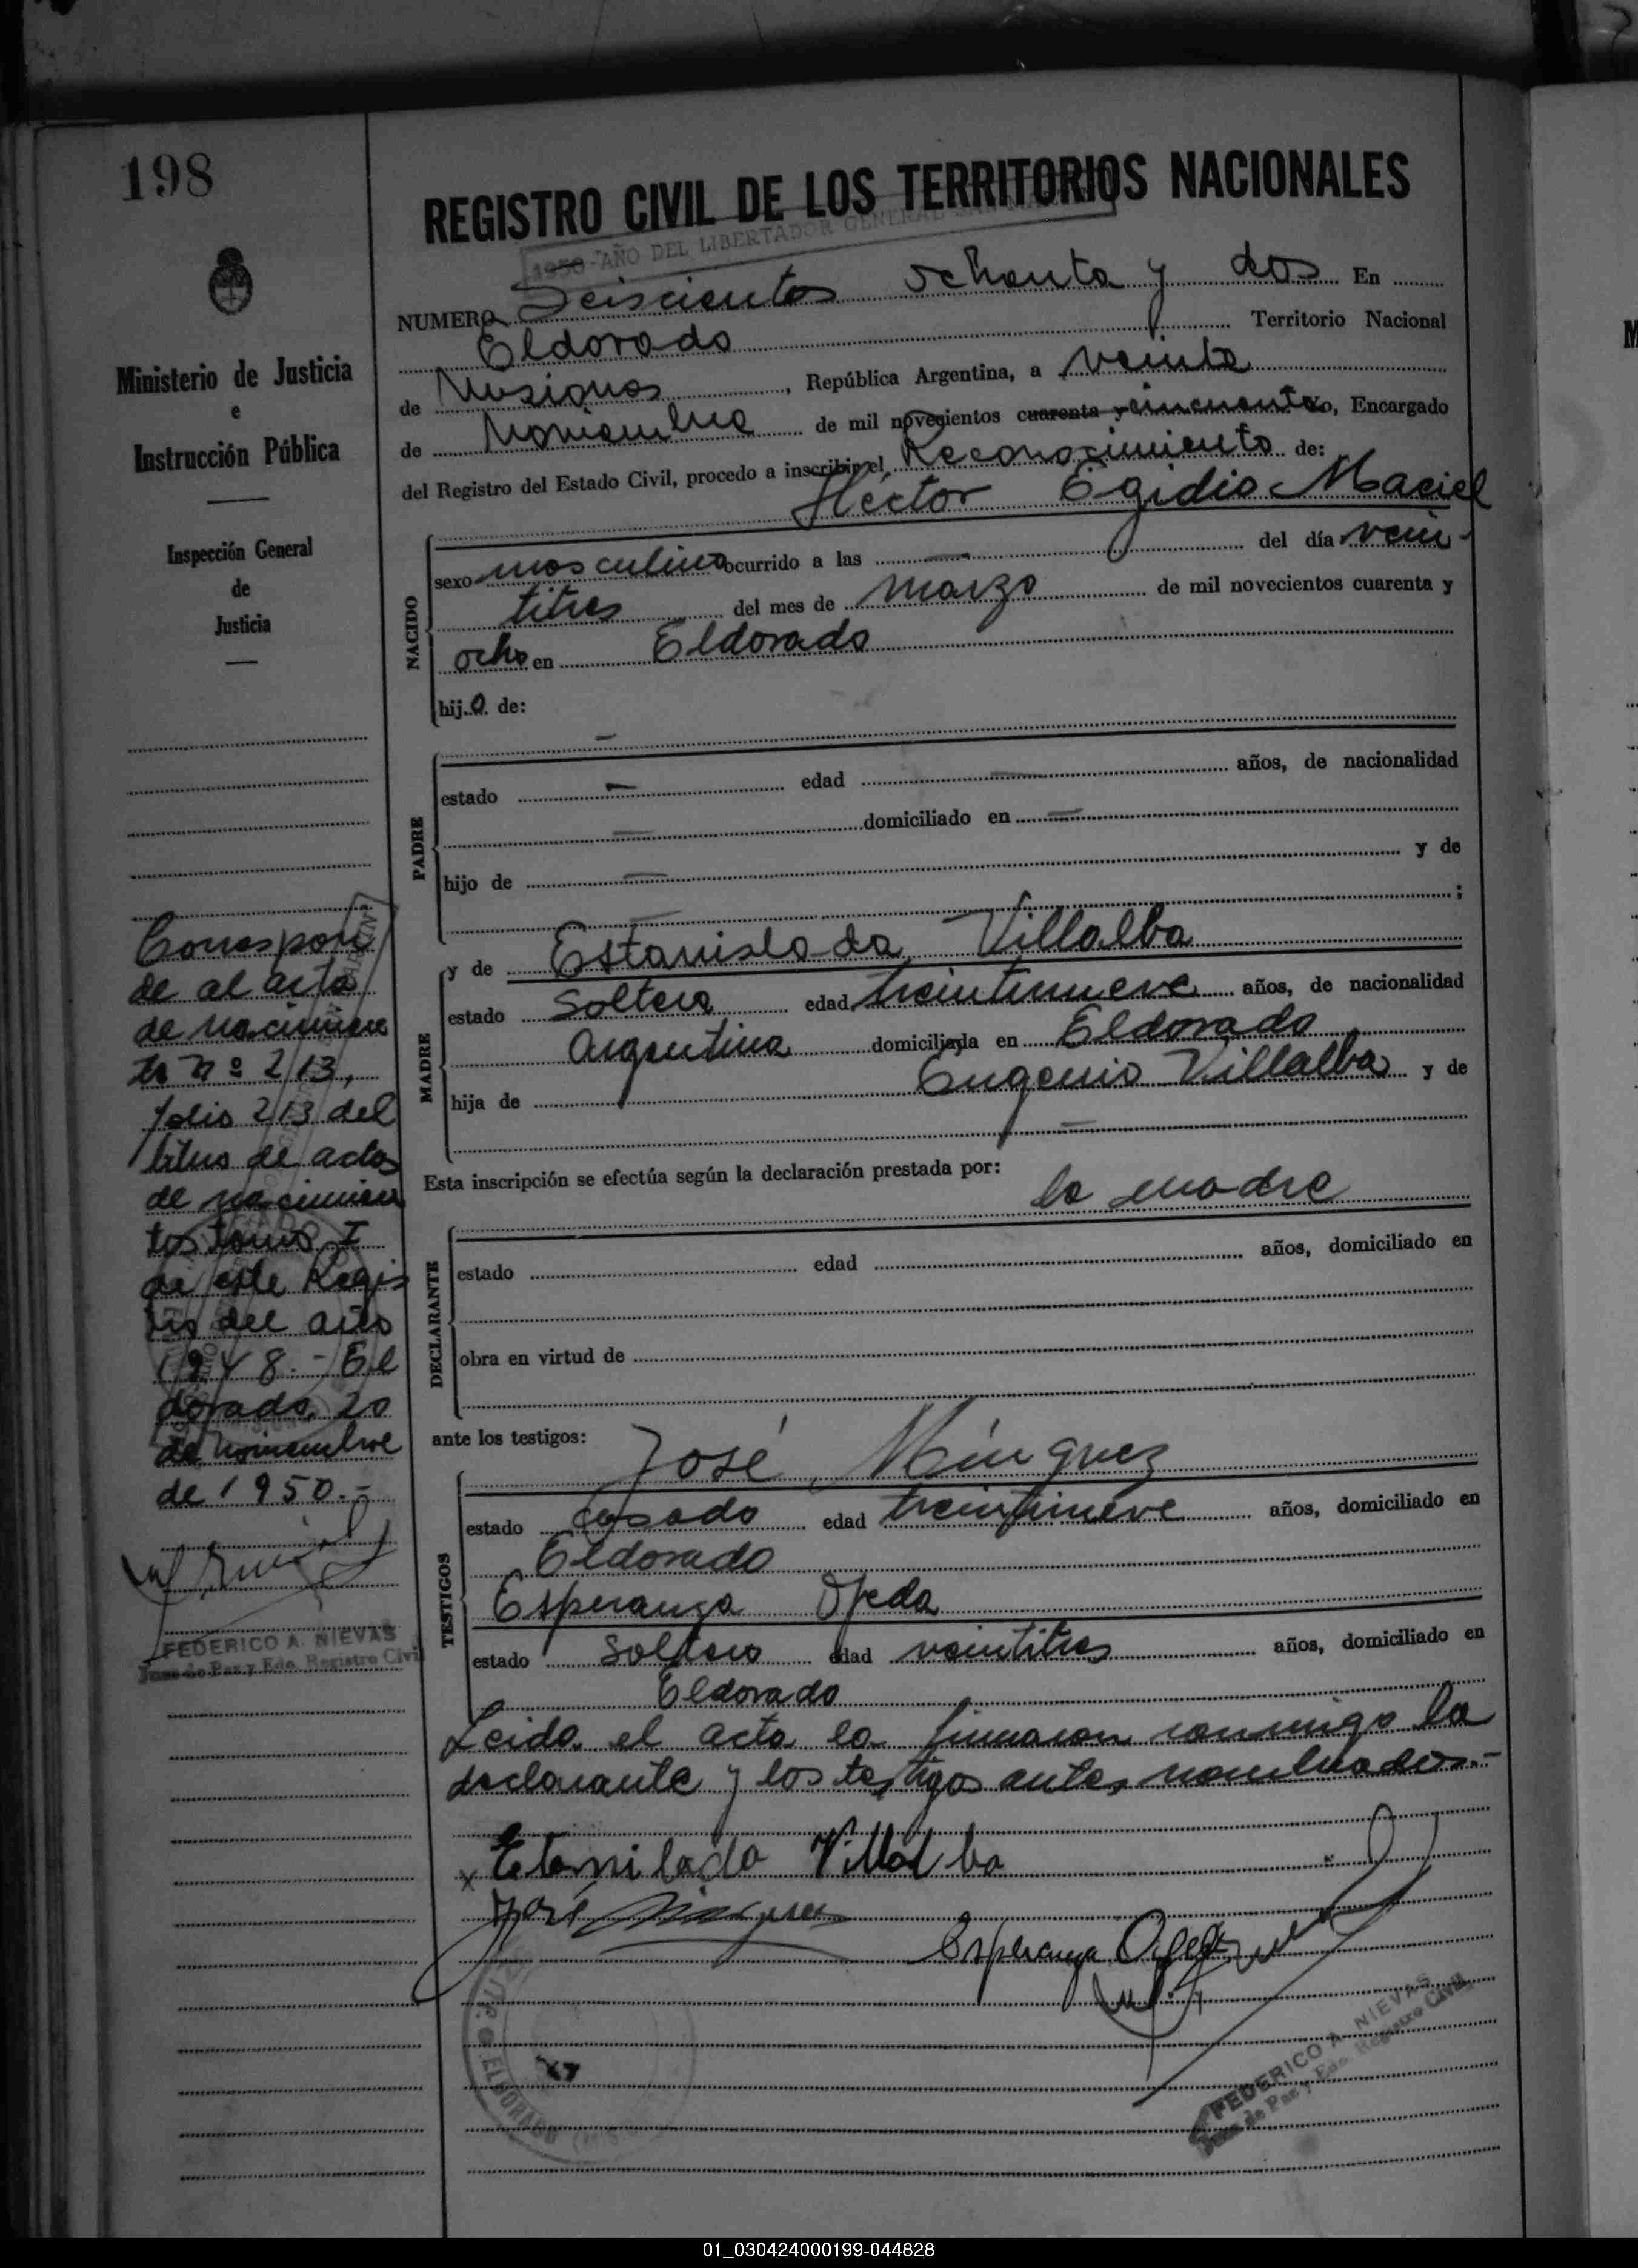 198
REGISTRO CIVIL DE LOS TERRITORIOS NACIONALES
1950 - AÑO DEL LIBERTADOR GENERAL SAN
NUMERO Seiscientos ochenta y dos En
Eldorado Territorio Nacional
de Misiones, República Argentina, a veinte
de Noviembre de mil novecientos cuarenta y cincuenta Yo, Encargado
del Registro del Estado Civil, procedo a inscribir el Reconocimiento de:
Héctor Egidio Maciel
NACIDO
sexo masculino ocurrido a las — del día vein-
titres del mes de marzo de mil novecientos cuarenta y
ocho en Eldorado
hijo de:
—
PADRE
estado — edad — años, de nacionalidad
— domiciliado en —
hijo de — y de
— ;
MADRE
y de Estanislada Villalba
estado Soltera edad treintinueve años, de nacionalidad
Argentina domiciliada en Eldorado
hija de Eugenio Villalba y de
—
Esta inscripción se efectúa según la declaración prestada por:
la madre
DECLARANTE
estado edad años, domiciliado en
obra en virtud de
ante los testigos:
José Minguez
TESTIGOS
estado casado edad treintinueve años, domiciliado en
Eldorado
Esperanza Ojeda
estado Soltera edad veintitres años, domiciliado en
Eldorado
Leida el acta la firmaron conmigo la
declarante y los testigos antes nombrados.-
x Etanilada Villalba
José Minguez
Esperanza Ojeda
FEDERICO A. NIEVAS
Juez de Paz y Edo. Registro Civil
ELDORADO
Ministerio de Justicia
e
Instrucción Pública
Inspección General
de
Justicia
Correspon
de al acta
de nacimien
to Nº 213,
folio 213 del
libro de actas
de nacimien
tos tomo I
de este Regis
tro del año
1948.- El
dorado, 20
de noviembre
de 1950.-
FEDERICO A. NIEVAS
Juez de Paz y Edo. Registro Civil
01_030424000199-044828